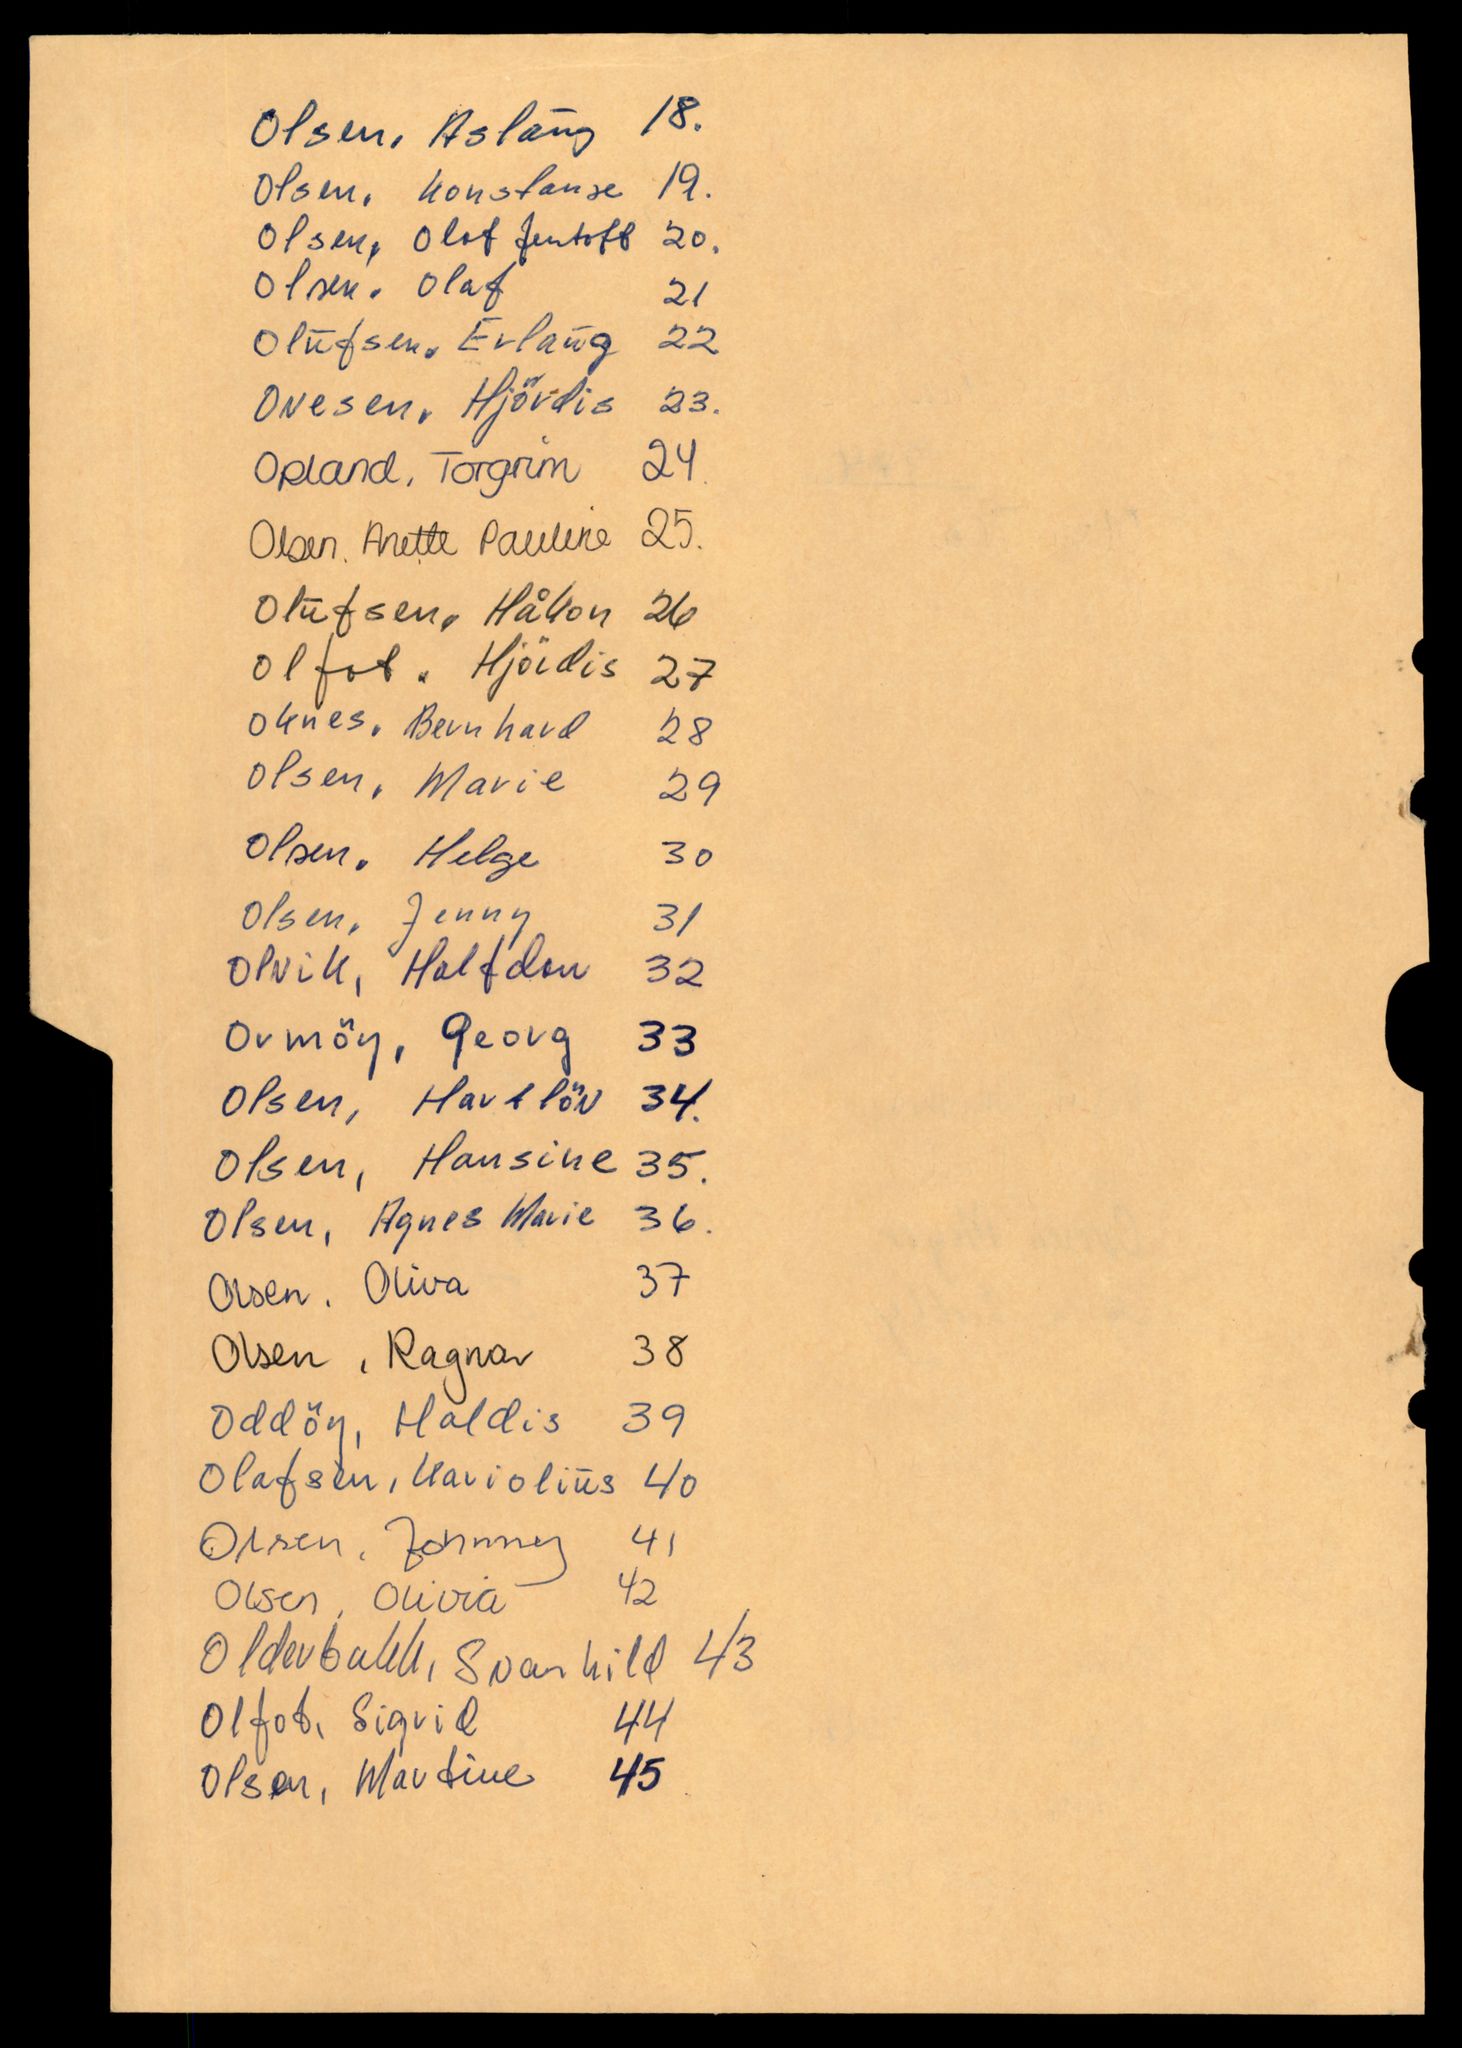 Olsen, Aslaug 18.
Olsen, Konstanse 19.
Olsen, Olaf Jentoft 20.
Olsen, Olaf 21
Olufsen, Erlaug 22
Ovesen, Hjördis 23.
Opland, Torgrim 24.
Olsen, Anette Pauline 25.
Olufsen, Håkon 26
Olfot, Hjördis 27
Oknes, Bernhard 28
Olsen, Marie 29
Olsen, Helge 30
Olsen, Jenny 31
Olvik, Halfdan 32
Ormöy, Georg 33
Olsen, Hartlöv 34.
Olsen, Hansine 35.
Olsen, Agnes Marie 36.
Olsen, Oliva 37
Olsen, Ragnar 38
Oddöy, Haldis 39
Olafsen, Kariolius 40
Olsen, Johnny 41
Olsen, Olivia 42
Olderbakk, Svanhild 43
Olfot, Sigrid 44
Olsen, Martine 45